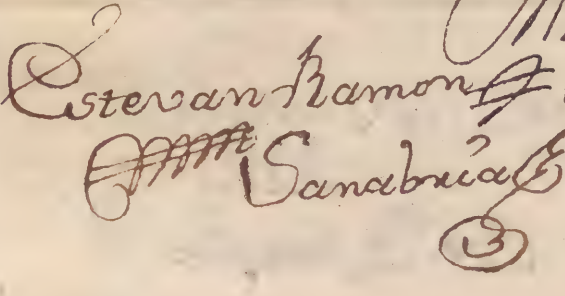 Estevan Ramon
Sanabria